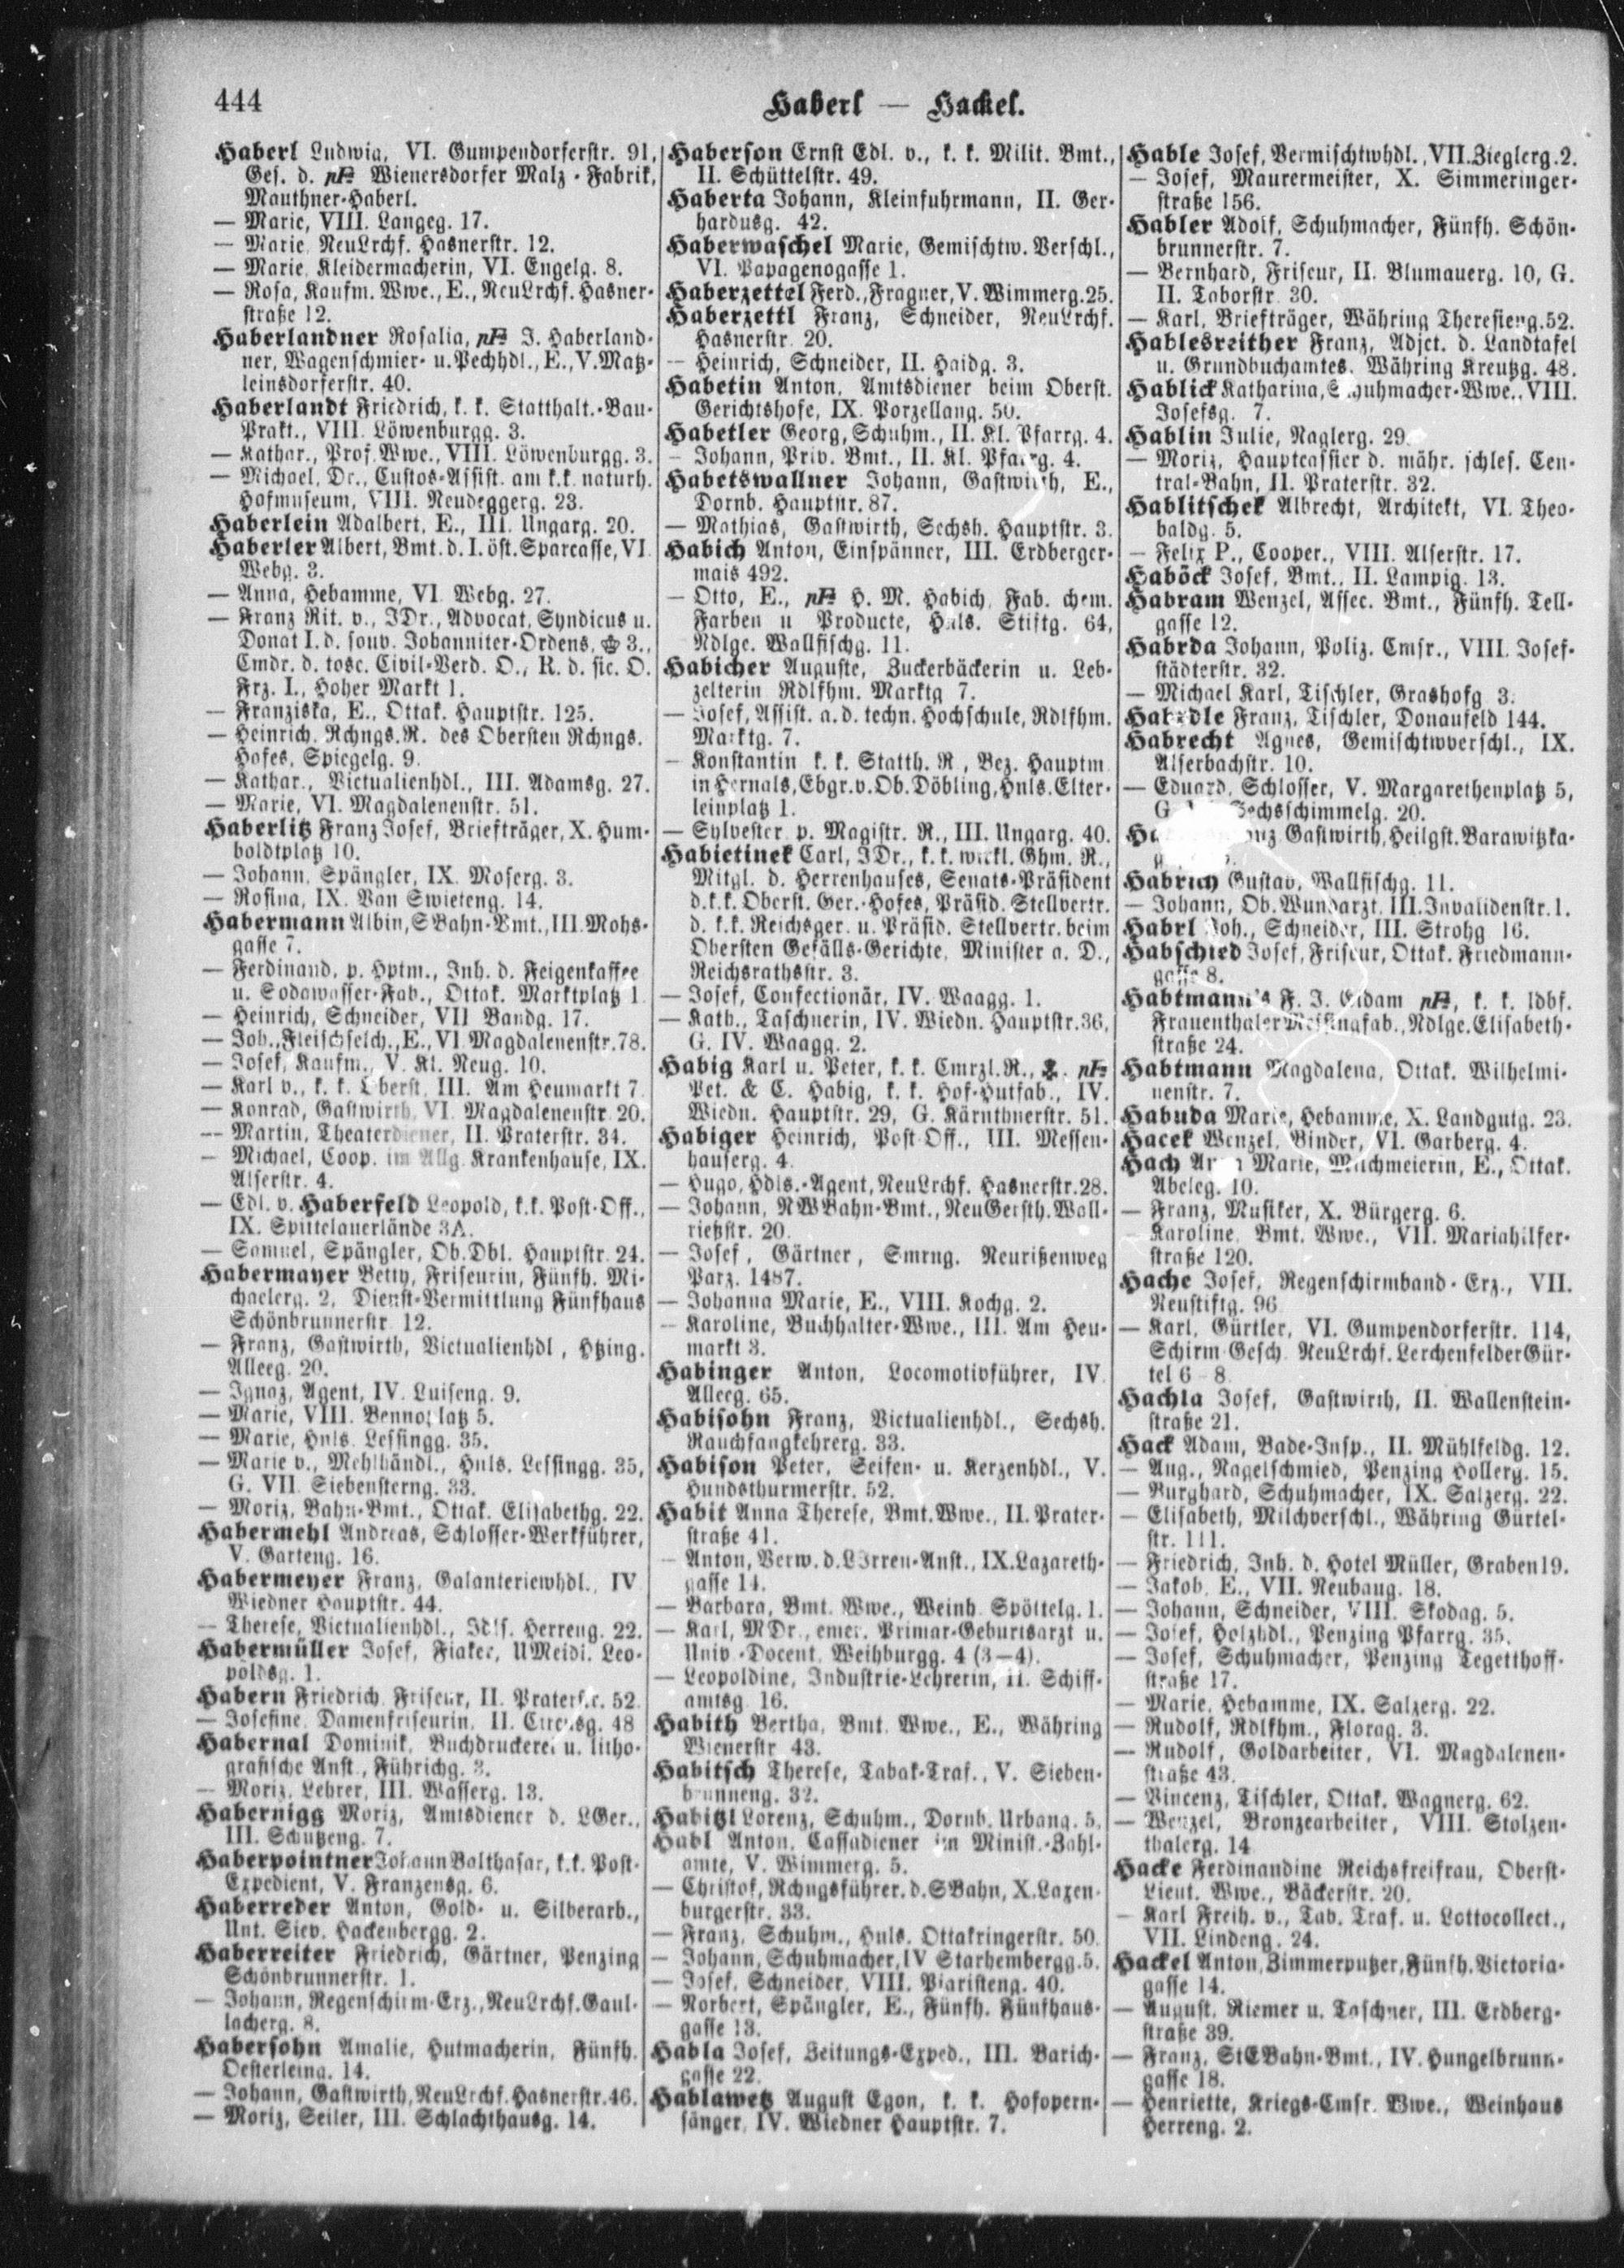 444
Haberl — Hackel.
Haberl Ludwig, VI. Gumpendorferstr. 91,
Ges. d. Wienersdorfer Malz-Fabrik,
Mauthner-Haberl.
— Marie, VIII. Langeg. 17.
— Marie, NeuLrchf. Hasnerstr. 12.
— Marie, Kleidermacherin, VI. Engelg. 8.
— Rosa, Kaufm. Wwe., E., NeuLrchf. Hasner-
straße 12.
Haberlandner Rosalia, J. Haberland-
ner, Wagenschmier- u. Pechhdl., E., V. Matz-
leinsdorferstr. 40.
Haberlandt Friedrich, k. k. Statthalt.-Bau-
Prakt., VIII. Löwenburgg. 3.
— Kathar., Prof. Wwe., VIII. Löwenburgg. 3.
— Michael, Dr., Custos-Assist. am k.k. naturh.
Hofmuseum, VIII. Neudeggerg. 23.
Haberlein Adalbert, E., III. Ungarg. 20.
Haberler Albert, Bmt. d. I. öst. Sparcasse, VI.
Webg. 3.
— Anna, Hebamme, VI. Webg. 27.
— Franz Rit. v., JDr., Advocat, Syndicus u.
Donat I. d. souv. Johanniter-Ordens, 3.,
Cmdr. d. tosc. Civil-Verd. O., R. d. sic. O.
Frz. I., Hoher Markt 1.
— Franziska, E., Ottak. Hauptstr. 125.
— Heinrich, Rchngs. R. des Obersten Rchngs.
Hofes, Spiegelg. 9.
— Kathar., Victualienhdl., III. Adamsg. 27.
— Marie, VI. Magdalenenstr. 51.
Haberlitz Franz Josef, Briefträger, X. Hum-
boldtplatz 10.
— Johann, Spängler, IX. Moserg. 3.
— Rosina, IX. Van Swieteng. 14.
Habermann Albin, SBahn-Bmt., III. Mohs-
gasse 7.
— Ferdinand, p. Hptm., Inh. d. Feigenkaffee
u. Sodawasser-Fab., Ottak. Marktplatz 1.
— Heinrich, Schneider, VII Bandg. 17.
— Joh., Fleischselch., E., VI Magdalenenstr. 78.
— Josef, Kaufm., V. Kl. Neug. 10.
— Karl v., k. k. Oberst, III. Am Heumarkt 7.
— Konrad, Gastwirth, VI. Magdalenenstr. 20.
— Martin, Theaterdiener, II. Praterstr. 34.
— Michael, Coop. im Allg. Krankenhause, IX.
Alserstr. 4.
— Edl. v. Haberfeld Leopold, k.k. Post-Off.,
IX. Spittelauerlände 3A.
— Samuel, Spängler, Ob. Dbl. Hauptstr. 24.
Habermayer Betty, Friseurin, Fünfh. Mi-
chaelerg. 2, Dienst-Vermittlung Fünfhaus
Schönbrunnerstr. 12.
— Franz, Gastwirth, Victualienhdl, Htzing.
Alleeg. 20.
— Ignaz, Agent, IV. Luiseng. 9.
— Marie, VIII. Bennoplatz 5.
— Marie, Hnls. Lessingg. 35.
— Marie v., Mehlhändl., Hnls. Lessingg. 35,
G. VII. Siebensterng. 33.
— Moriz, Bahn-Bmt., Ottak. Elisabethg. 22.
Habermehl Andreas, Schlosser-Werkführer,
V. Garteng. 16.
Habermeyer Franz, Galanteriewhdl., IV.
Wiedner Hauptstr. 44.
— Therese, Victualienhdl., Jdlf. Herreng. 22.
Habermüller Josef, Fiaker, UMeidl. Leo-
poldsg. 1.
Habern Friedrich, Friseur, II. Praterstr. 52.
— Josefine, Damenfriseurin, II. Circusg. 48
Habernal Dominik, Buchdruckerei u. litho-
grafische Anst., Führichg. 3.
— Moriz, Lehrer, III. Wasserg. 13.
Habernigg Moriz, Amtsdiener d. LGer.,
III. Schützeng. 7.
Haberpointner Johann Balthasar, k.k. Post-
Expedient, V. Franzensg. 6.
Haberreder Anton, Gold- u. Silberarb.,
Unt. Siev. Hackenbergg. 2.
Haberreiter Friedrich, Gärtner, Penzing
Schönbrunnerstr. 1.
— Johann, Regenschirm-Erz., NeuLrchf. Gaul-
lacherg. 8.
Habersohn Amalie, Hutmacherin, Fünfh.
Oesterleing. 14.
— Johann, Gastwirth, NeuLrchf. Hasnerstr. 46.
— Moriz, Seiler, III. Schlachthausg. 14.
Haberson Ernst Edl. v., k. k. Milit. Bmt.,
II. Schüttelstr. 49.
Haberta Johann, Kleinfuhrmann, II. Ger-
hardusg. 42.
Haberwaschel Marie, Gemischtw. Verschl.,
VI. Papagenogasse 1.
Haberzettel Ferd., Fragner, V. Wimmerg. 25.
Haberzettl Franz, Schneider, NeuLrchf.
Hasnerstr. 20.
— Heinrich, Schneider, II. Haidg. 3.
Habetin Anton, Amtsdiener beim Oberst.
Gerichtshofe, IX. Porzellang. 50.
Habetler Georg, Schuhm., II. Kl. Pfarrg. 4.
— Johann, Priv. Bmt., II. Kl. Pfarrg. 4.
Habetswallner Johann, Gastwirth, E.,
Dornb. Hauptstr. 87.
— Mathias, Gastwirth, Sechsh. Hauptstr. 3.
Habich Anton, Einspänner, III. Erdberger-
mais 492.
— Otto, E., H. M. Habich, Fab. chem.
Farben u Producte, Hnls. Stiftg. 64,
Ndlge. Wallfischg. 11.
Habicher Auguste, Zuckerbäckerin u. Leb-
zelterin Rdlfhm. Marktg 7.
— Josef, Assist. a. d. techn. Hochschule, Rdlfhm.
Marktg. 7.
— Konstantin k. k. Statth. R., Bez. Hauptm
in Hernals, Ebgr. v. Ob. Döbling, Hnls. Elter-
leinplatz 1.
— Sylvester, p. Magistr. R., III. Ungarg. 40.
Habietinek Carl, JDr., k. k. wirkl. Ghm. R.,
Mitgl. d. Herrenhauses, Senats-Präsident
d. k.k. Oberst. Ger.-Hofes, Präsid. Stellvertr.
d. k.k. Reichsger. u. Präsid. Stellvertr. beim
Obersten Gefälls-Gerichte, Minister a. D.,
Reichsrathsstr. 3.
— Josef, Confectionär, IV. Waagg. 1.
— Kath., Taschnerin, IV. Wiedn. Hauptstr. 36,
G. IV. Waagg. 2.
Habig Karl u. Peter, k. k. Cmrzl. R.,
Pet. & C. Habig, k. k. Hof-Hutfab., IV.
Wiedn. Hauptstr. 29, G. Kärnthnerstr. 51.
Habiger Heinrich, Post-Off., III. Messen-
hauserg. 4.
— Hugo, Hdls.-Agent, NeuLrchf. Hasnerstr. 28.
— Johann, NWBahn-Bmt., NeuGersth. Wall-
rießstr. 20.
— Josef, Gärtner, Smrng. Neurißenweg
Parz. 1487.
— Johanna Marie, E., VIII. Kochg. 2.
— Karoline, Buchhalter-Wwe., III. Am Heu-
markt 3.
Habinger Anton, Locomotivführer, IV.
Alleeg. 65.
Habisohn Franz, Victualienhdl., Sechsh.
Rauchfangkehrerg. 33.
Habison Peter, Seifen- u. Kerzenhdl., V.
Hundsthurmerstr. 52.
Habit Anna Therese, Bmt. Wwe., II. Prater-
straße 41.
— Anton, Verw. d. LIrren-Anst., IX. Lazareth-
gasse 14.
— Barbara, Bmt. Wwe., Weinh. Spöttelg. 1.
— Karl, MDr., emer. Primar-Geburtsarzt u.
Univ.-Docent, Weihburgg. 4 (3—4).
— Leopoldine, Industrie-Lehrerin, II. Schiff-
amtsg. 16.
Habith Bertha, Bmt. Wwe., E., Währing
Wienerstr. 43.
Habitsch Therese, Tabak-Traf., V. Sieben-
brunneng. 32.
Habitzl Lorenz, Schuhm., Dornb. Urbang. 5.
Habl Anton, Cassadiener im Minist.-Zahl-
amte, V. Wimmerg. 5.
— Christof, Rchngsführer. d. SBahn, X. Laxen-
burgerstr. 33.
— Franz, Schuhm., Hnls. Ottakringerstr. 50.
— Johann, Schuhmacher, IV Starhembergg. 5.
— Josef, Schneider, VIII. Piaristeng. 40.
— Norbert, Spängler, E., Fünfh. Fünfhaus-
gasse 13.
Habla Josef, Zeitungs-Exped., III. Barich-
gasse 22.
Hablawetz August Egon, k. k. Hofopern-
sänger, IV. Wiedner Hauptstr. 7.
Hable Josef, Vermischtwhdl., VII. Zieglerg. 2.
— Josef, Maurermeister, X. Simmeringer-
straße 156.
Habler Adolf, Schuhmacher, Fünfh. Schön-
brunnerstr. 7.
— Bernhard, Friseur, II. Blumauerg. 10, G.
II. Taborstr 30.
— Karl, Briefträger, Währing Theresieng. 52.
Hablesreither Franz, Adjct. d. Landtafel
u. Grundbuchamtes, Währing Kreutzg. 48.
Hablick Katharina, Schuhmacher-Wwe., VIII.
Josefsg. 7.
Hablin Julie, Naglerg. 29.
— Moriz, Hauptcassier d. mähr. schles. Cen-
tral-Bahn, II. Praterstr. 32.
Hablitschek Albrecht, Architekt, VI. Theo-
baldg. 5.
— Felix P., Cooper., VIII. Alserstr. 17.
Haböck Josef, Bmt., II. Lampig. 13.
Habram Wenzel, Assec. Bmt., Fünfh. Tell-
gasse 12.
Habrda Johann, Poliz. Cmsr., VIII. Josef-
städterstr. 32.
— Michael Karl, Tischler, Grashofg 3.
Franz, Tischler, Donaufeld 144.
Habrecht Agnes, Gemischtwverschl., IX.
Alserbachstr. 10.
— Eduard, Schlosser, V. Margarethenplatz 5,
G. Sechsschimmelg. 20.
Gastwirth, Heilgst. Barawitzka-
Habrich Gustav, Wallfischg. 11.
— Johann, Ob. Wundarzt, III. Invalidenstr. 1.
Habrl Joh., Schneider, III. Strohg 16.
Habschied Josef, Friseur, Ottak. Friedmann-
gasse 8.
Habtmann's F. J. Eidam, k. k. ldbf.
Frauenthaler Messingfab., Ndlge. Elisabeth-
straße 24.
Habtmann Magdalena, Ottak. Wilhelmi-
nenstr. 7.
Habuda Marie, Hebamme, X. Landgutg. 23.
Hacek Wenzel, Binder, VI. Garberg. 4.
Hach Anna Marie, Milchmeierin, E., Ottak.
Abeleg. 10.
— Franz, Musiker, X. Bürgerg. 6.
— Karoline, Bmt. Wwe., VII. Mariahilfer-
straße 120.
Hache Josef, Regenschirmband-Erz., VII.
Neustiftg. 96
— Karl, Gürtler, VI. Gumpendorferstr. 114,
Schirm Gesch. NeuLrchf. Lerchenfelder Gür-
tel 6-8.
Hachla Josef, Gastwirth, II. Wallenstein-
straße 21.
Hack Adam, Bade-Insp., II. Mühlfeldg. 12.
— Aug., Nagelschmied, Penzing Hollerg. 15.
— Burghard, Schuhmacher, IX. Salzerg. 22.
— Elisabeth, Milchverschl., Währing Gürtel-
str. 111.
— Friedrich, Inh. d. Hotel Müller, Graben 19.
— Jakob, E., VII. Neubaug. 18.
— Johann, Schneider, VIII. Skodag. 5.
— Josef, Holzhdl., Penzing Pfarrg. 35.
— Josef, Schuhmacher, Penzing Tegetthoff-
straße 17.
— Marie, Hebamme, IX. Salzerg. 22.
— Rudolf, Rdlfhm., Florag. 3.
— Rudolf, Goldarbeiter, VI. Magdalenen-
straße 43.
— Vincenz, Tischler, Ottak. Wagnerg. 62.
— Wenzel, Bronzearbeiter, VIII. Stolzen-
thalerg. 14
Hacke Ferdinandine Reichsfreifrau, Oberst-
Lieut. Wwe., Bäckerstr. 20.
— Karl Freih. v., Tab. Traf. u. Lottocollect.,
VII. Lindeng. 24.
Hackel Anton, Zimmerputzer, Fünfh. Victoria-
gasse 14.
— August, Riemer u. Taschner, III. Erdberg-
straße 39.
— Franz, StEBahn-Bmt., IV. Hungelbrunn-
gasse 18.
— Henriette, Kriegs-Cmsr. Wwe., Weinhaus
Herreng. 2.